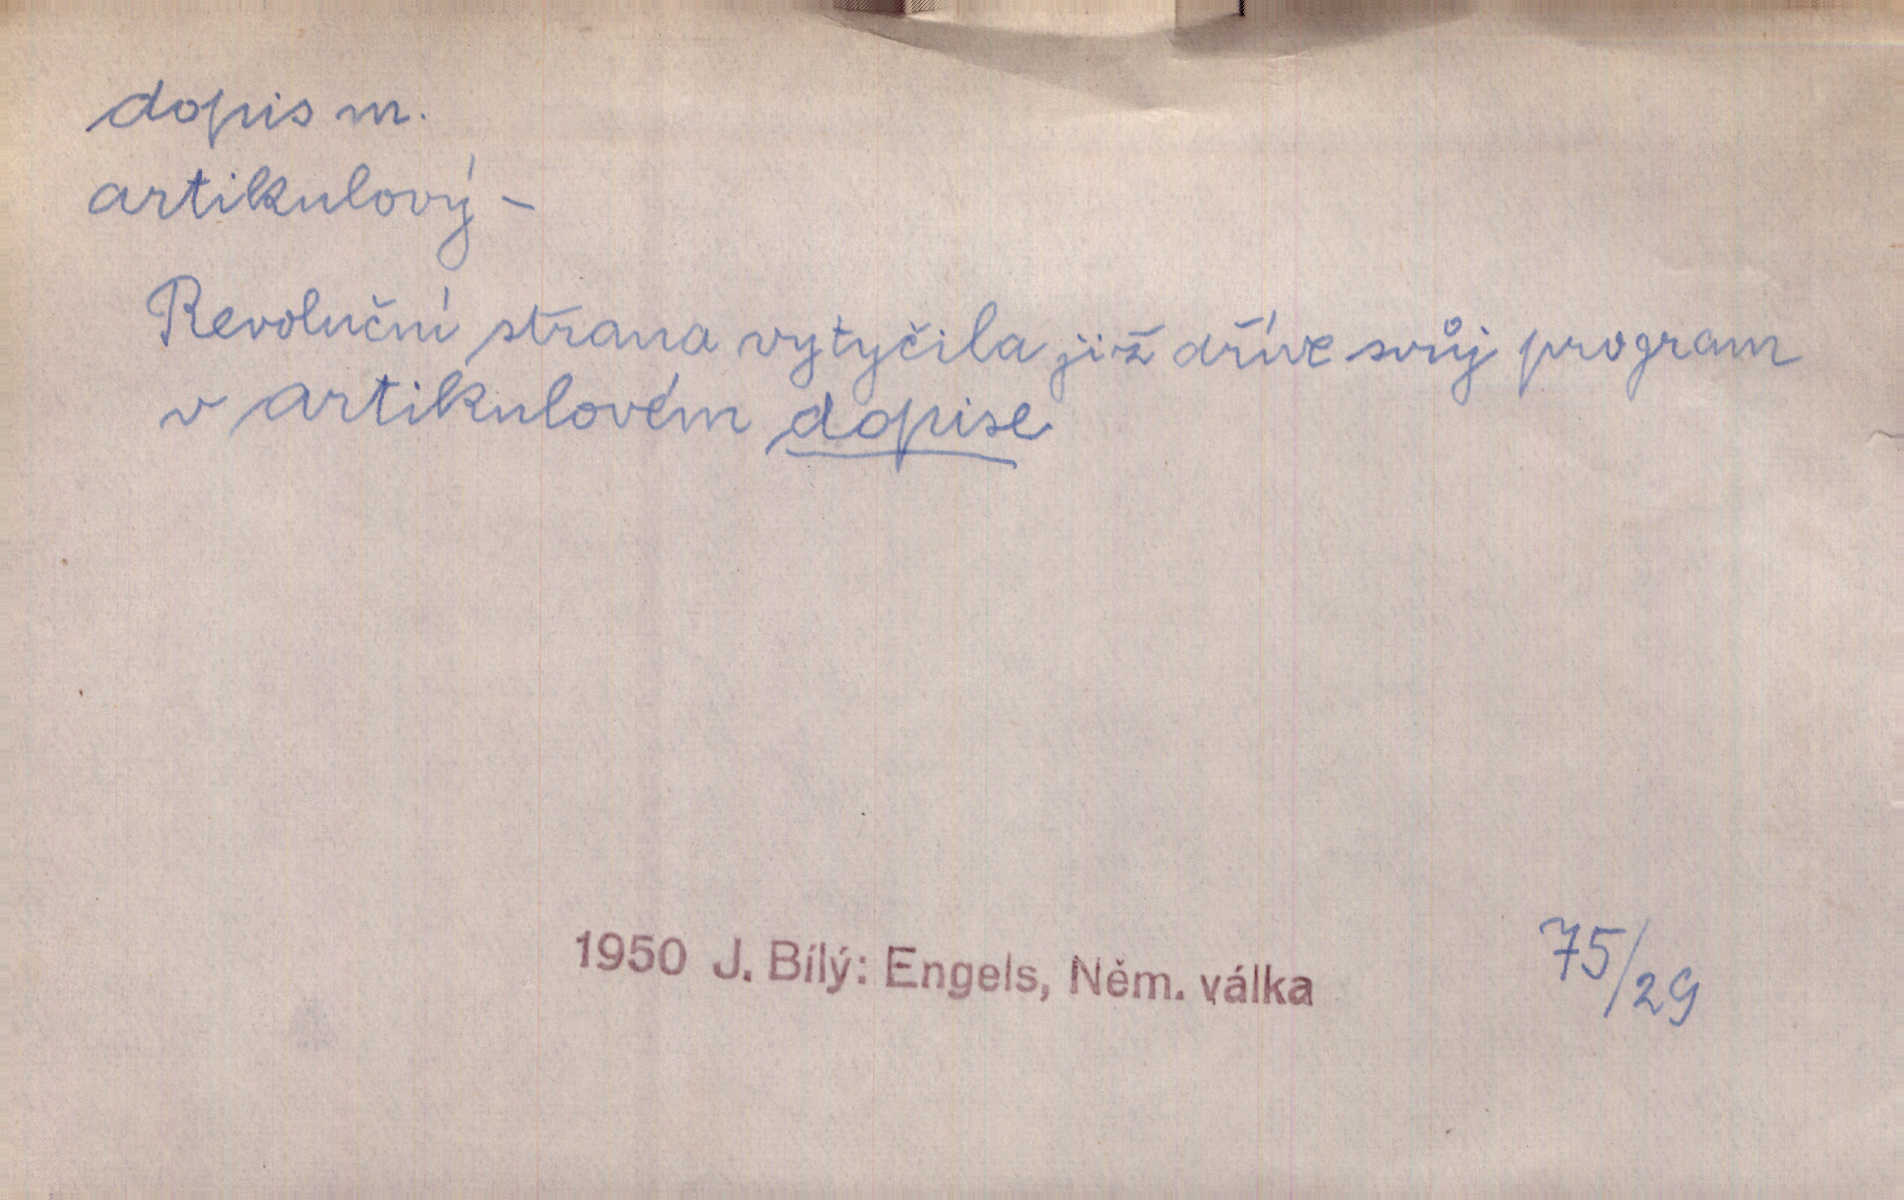 dopis m.
artikulový -
Revoluční strana vytyčila již dříve svůj program
v artikulovém dopise
1950 J. Bílý: Engels, Něm. válka
75/29